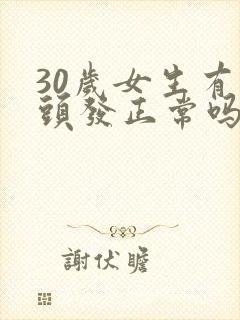 30歲女生有
頭發正常嗎
謝伏瞻